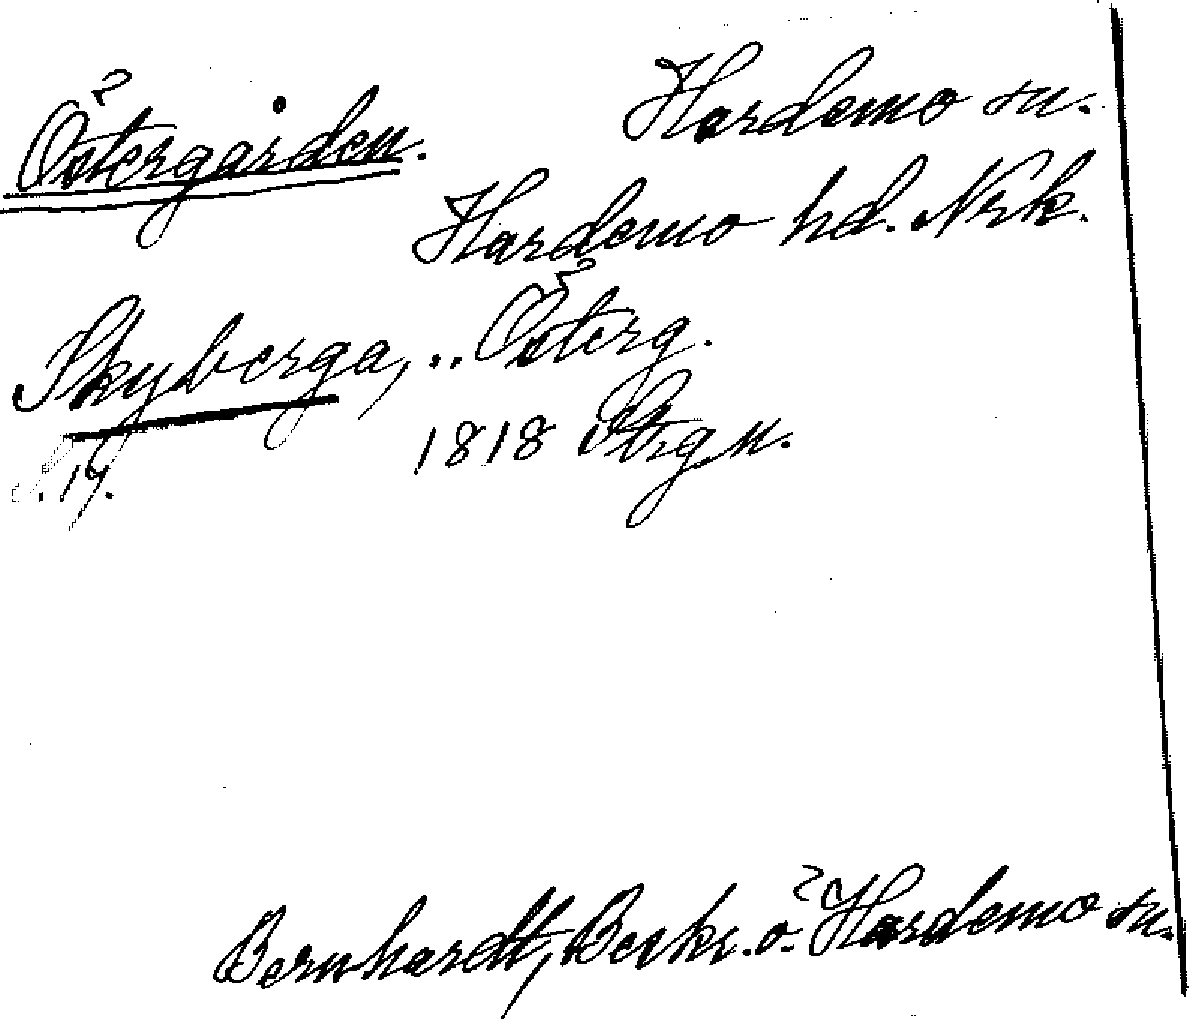 Östergården. Hardemo sn.
Hardemo hd. Nrk.
Skyberga, .. Österg.
1818 Strgn.
s. 17.
Bernhardt, Beskr. ö. Hardemo sn.